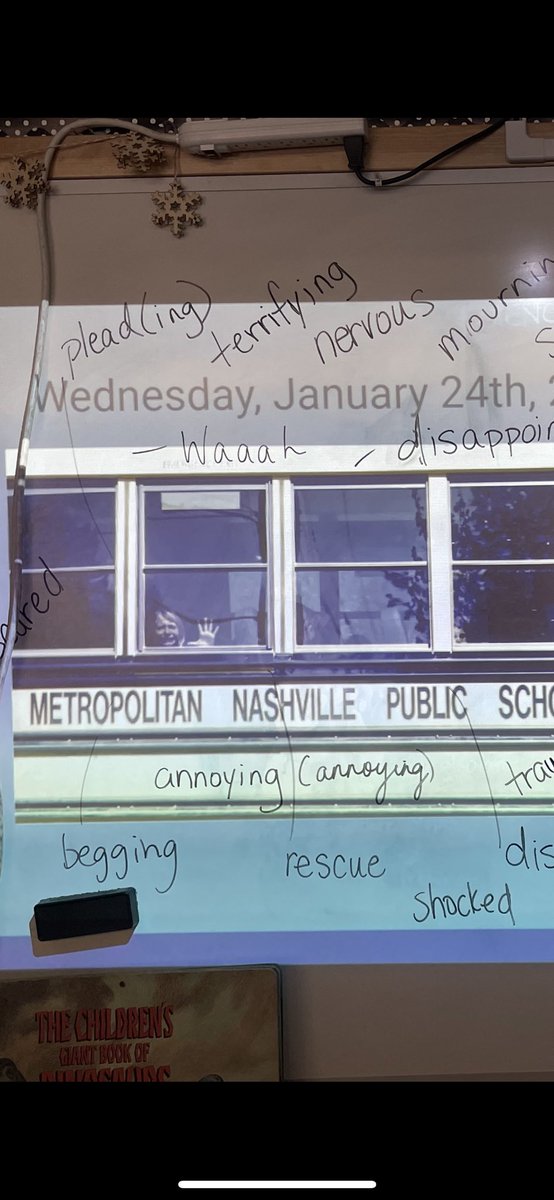 plead(ing) terrifying nervous
Wednesday, January 24th,
- Waaah - disappoin
METROPOLITAN NASHVILLE PUBLIC SCHO
annoying (annoying)
begging rescue
shocked
THE CHILDREN'S
GIANT BOOK OF
DINOSAURS